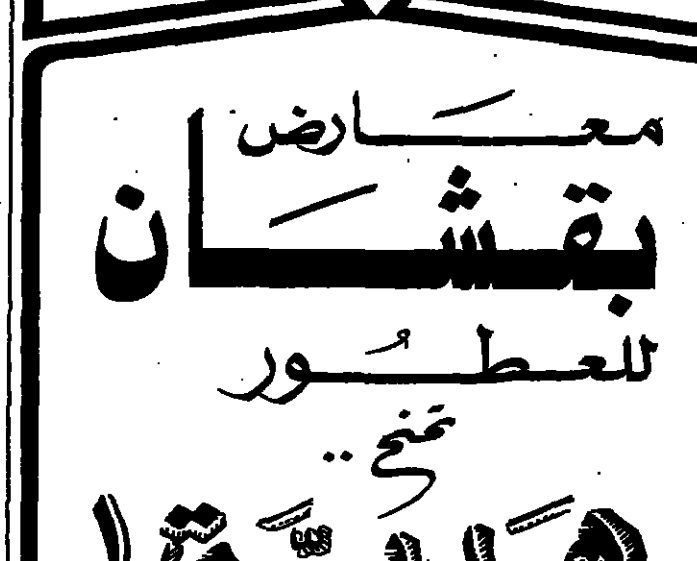 معَارض
بقشَان
للعطُور
تمنح ..